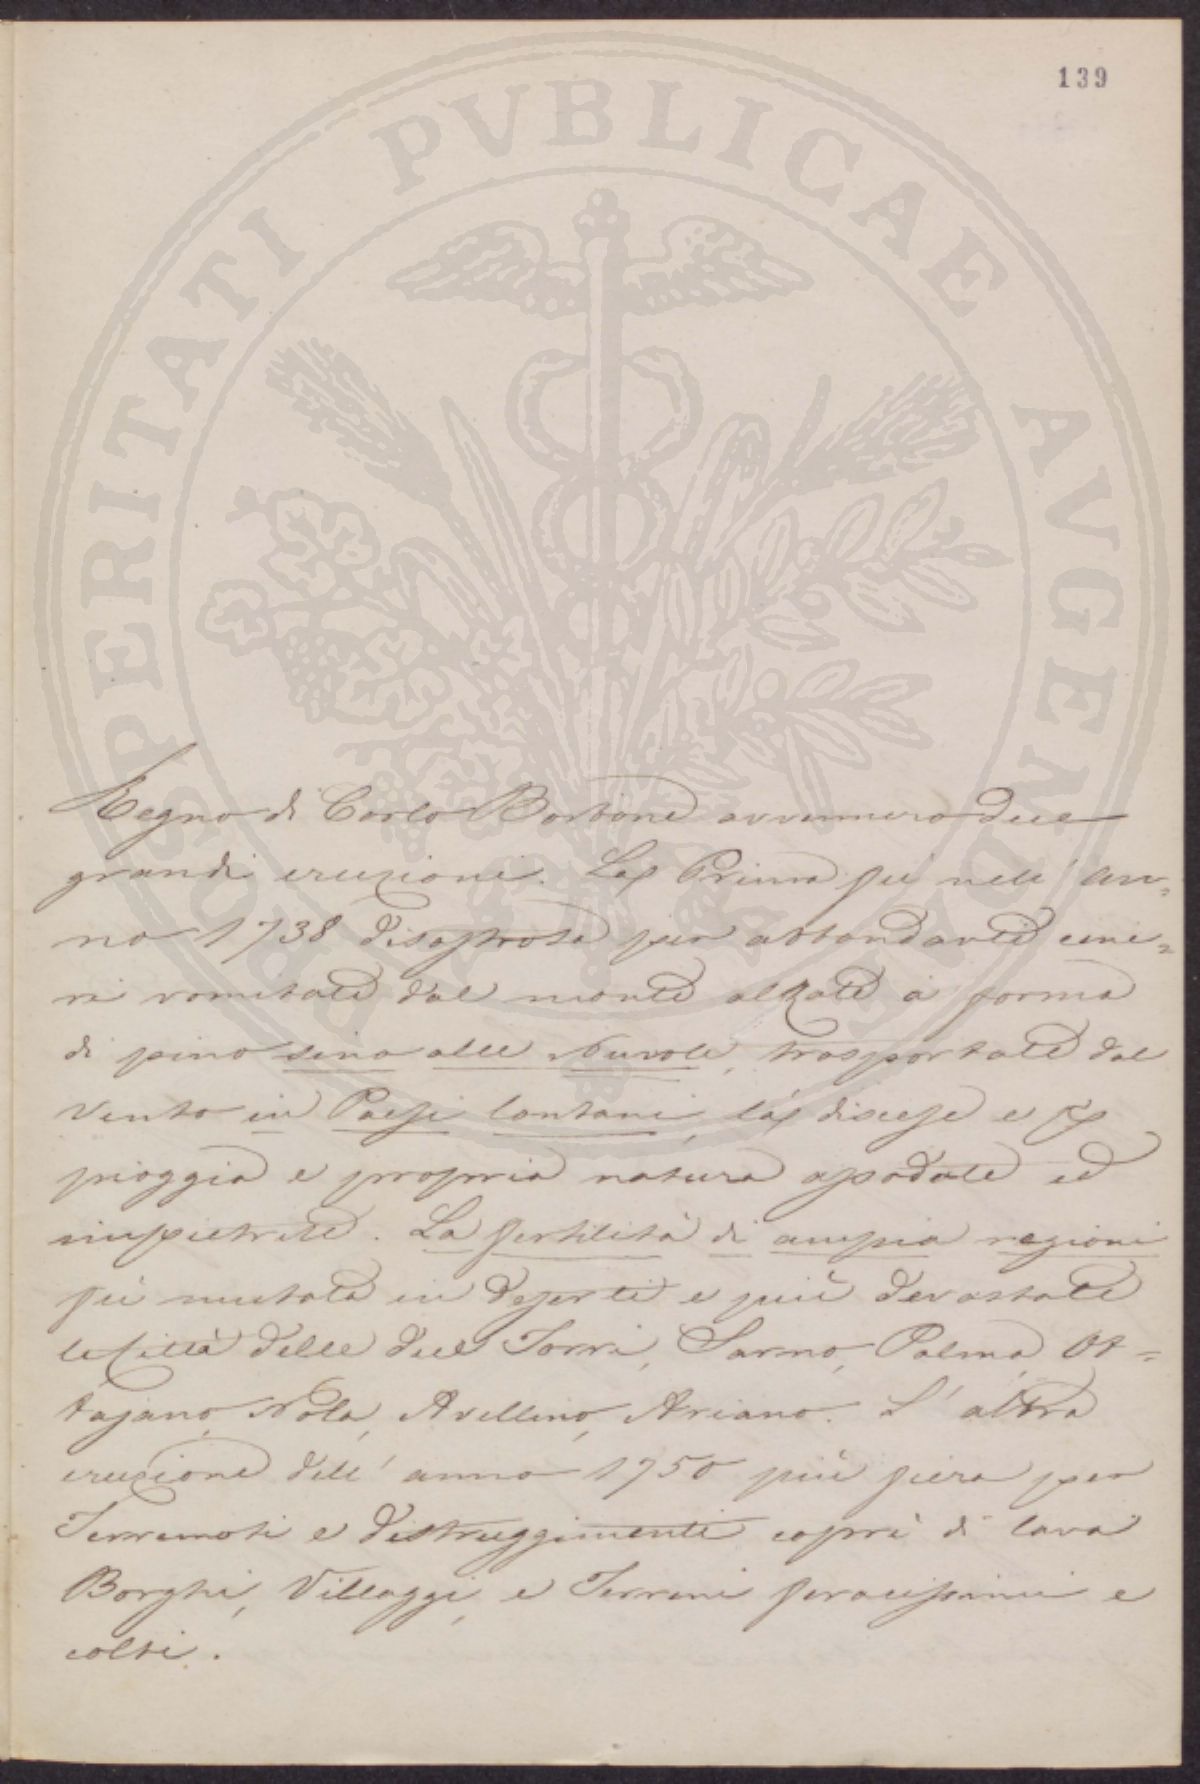 139
PROSPERITATI PVBLICAE AVGENDAE
Regno di Carlo Borbone avvennero due
grandi eruzioni. La Prima fù nell' an=
no 1738 disastrosa per abbondante cene=
ri vomitate dal monte alzate a forma
di pino sino alle Nuvole, trasportate dal
vento in Paesi lontani, là discese e
pioggia e propria natura assodate ed
impietrite. La fertilità di ampia regioni
fù mutata in deserti e più devastate
le Città delle due Torri, Sarno, Palma, Ot=
tajano, Nola, Avellino, Ariano. L' altra
eruzione dell' anno 1750 più fiera per
Terremoti e distruggimenti coprì di lava
Borghi, Villaggi, e Terreni feracissimi e
colti.